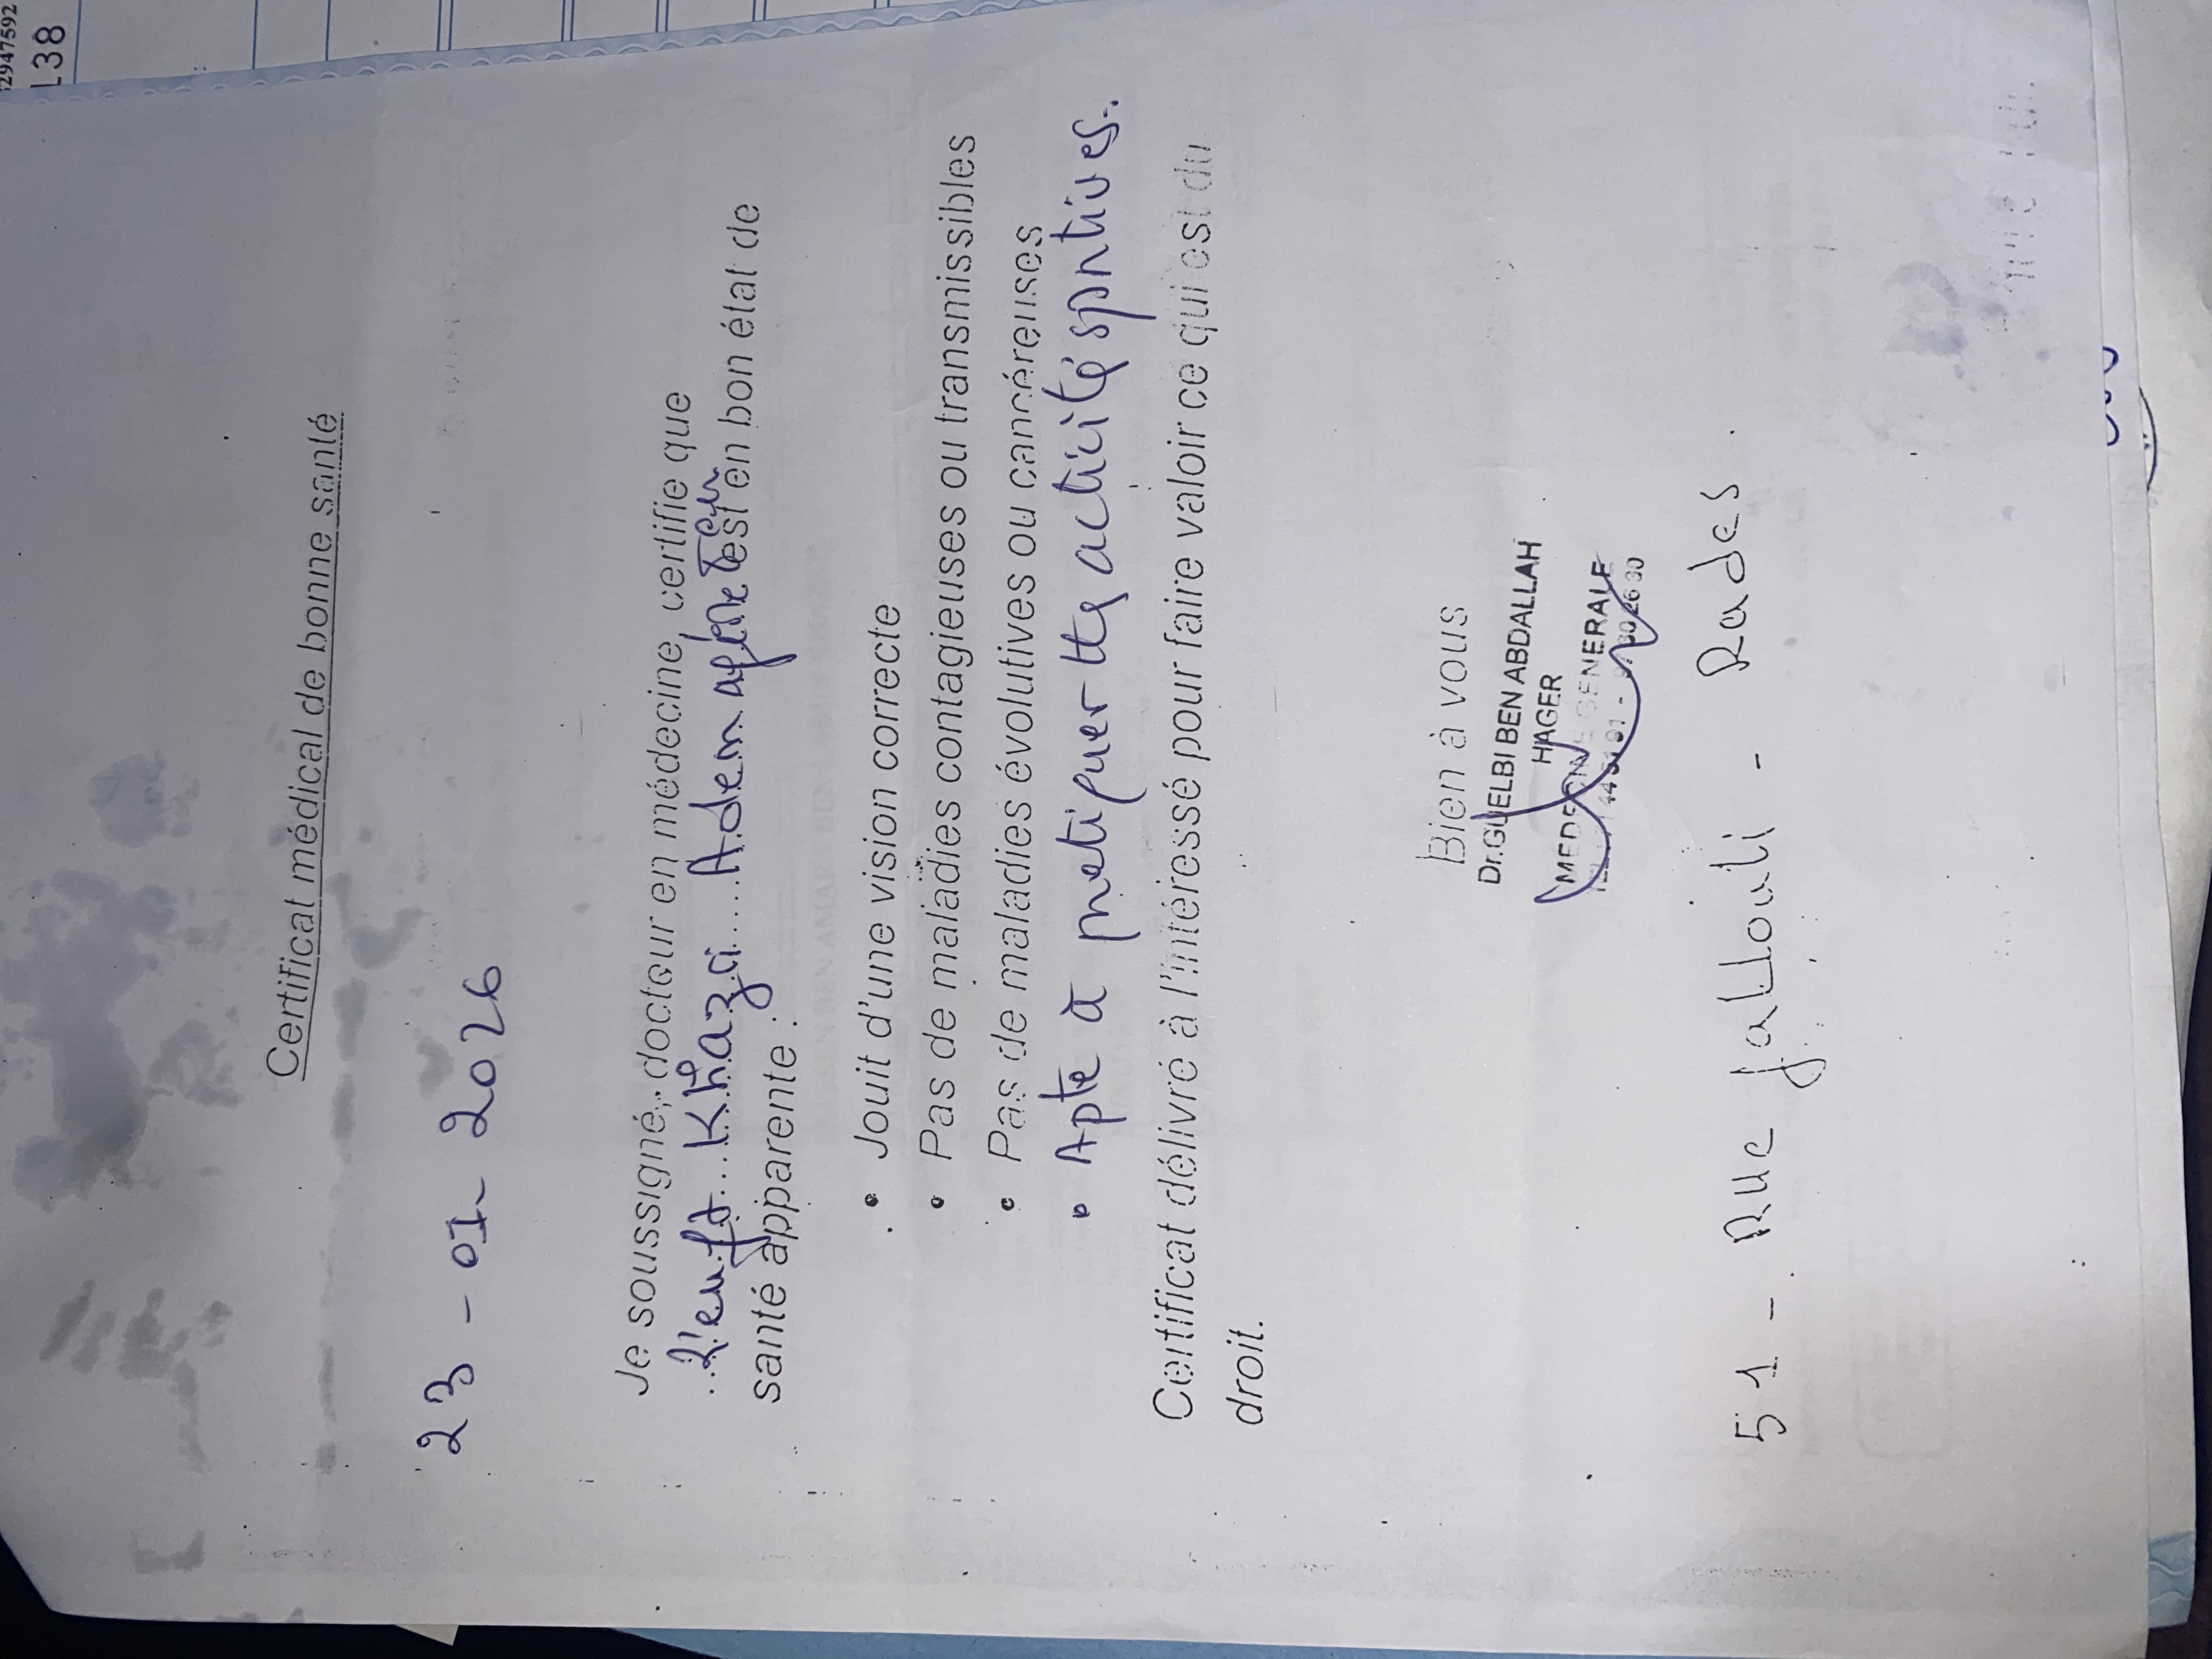 Certificat médical de bonne santé
23 - 01 - 2026
Je soussigné, docteur en médecine, certifie que
..L'enft...Khazri.....Adem est en bon état de
santé apparente :
• Jouit d'une vision correcte
• Pas de maladies contagieuses ou transmissibles
• Pas de maladies évolutives ou cancéreuses
• Apte à pratiquer activités sportives.
Certificat délivré à l'intéressé pour faire valoir ce qui est du
droit.
Bien à vous
Dr.GUELBI BEN ABDALLAH
HAGER
MEDECINE GENERALE
51 - Rue - Rades.
2947592
138